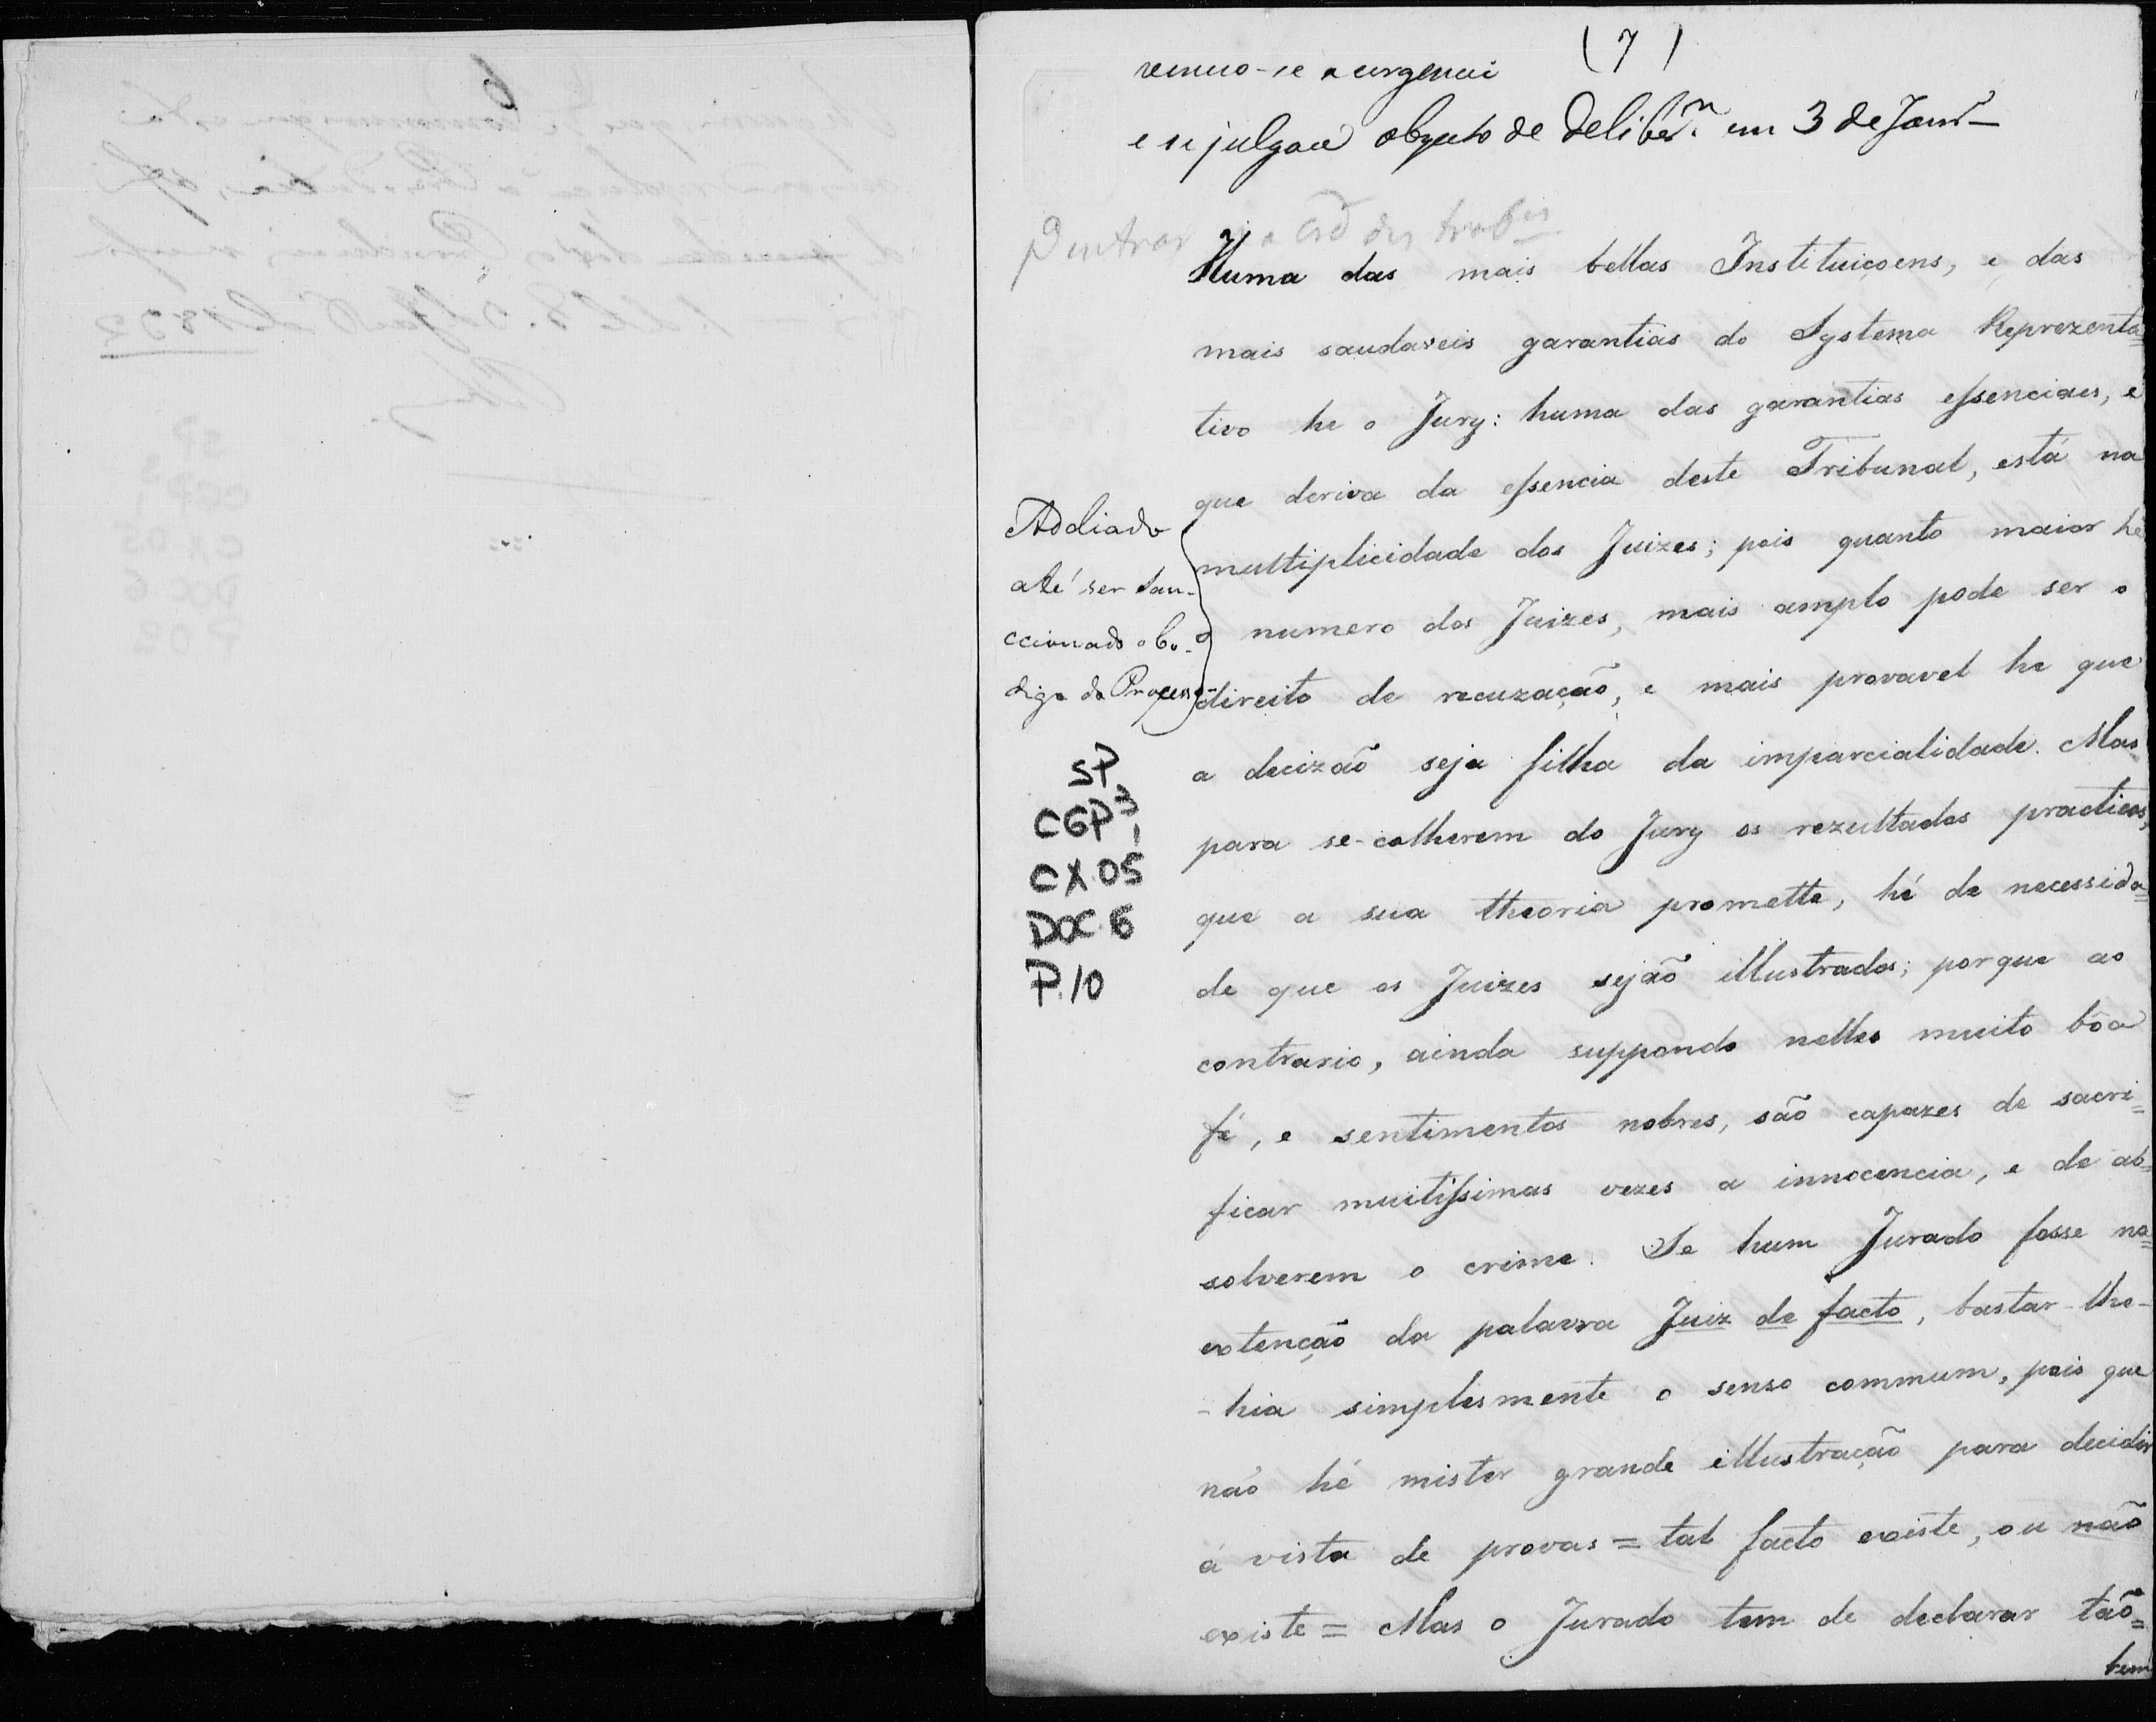 (7)
e se julgou objecto de deliber.m em 3 de Janr.o
Huma das mais bellas Instituiçoens, e das
mais saudaveis garantias do Systema Reprezenta=
tivo he o Jury: huma das garantias essenciaes, e
que deriva da essencia deste Tribunal, está na
multiplicidade dos Juizes; pois quanto maior hé
o numero dos Juizes, mais amplo pode ser o
direito de recuzação, e mais provavel he que
a decizão seja filha da imparcialidade. Mas
para se-colherem do Jury os rezultados practicos,
que a sua theoria promette, hé de necessida=
de que os Juizes sejão illustrados; porque ao
contrario, ainda suppondo nelles muito bôa
fé, e sentimentos nobres, são capazes de sacri=
ficar muitissimas vezes a innocencia, e de ab=
solverem o crime. Se hum Jurado fosse na
extenção da palavra Juiz de facto, bastar-lhe-
-hia simplesmente o senso commum, pois que
não hé mister grande illustração para decidir
á vista de provas = tal facto existe, ou não
existe = Mas o Jurado tem de declarar tão=
bem
Addiado
até ser san-
ccionado o Co-
digo do Processo
SP
CGP3,
CX.05
DOC.6
P.10